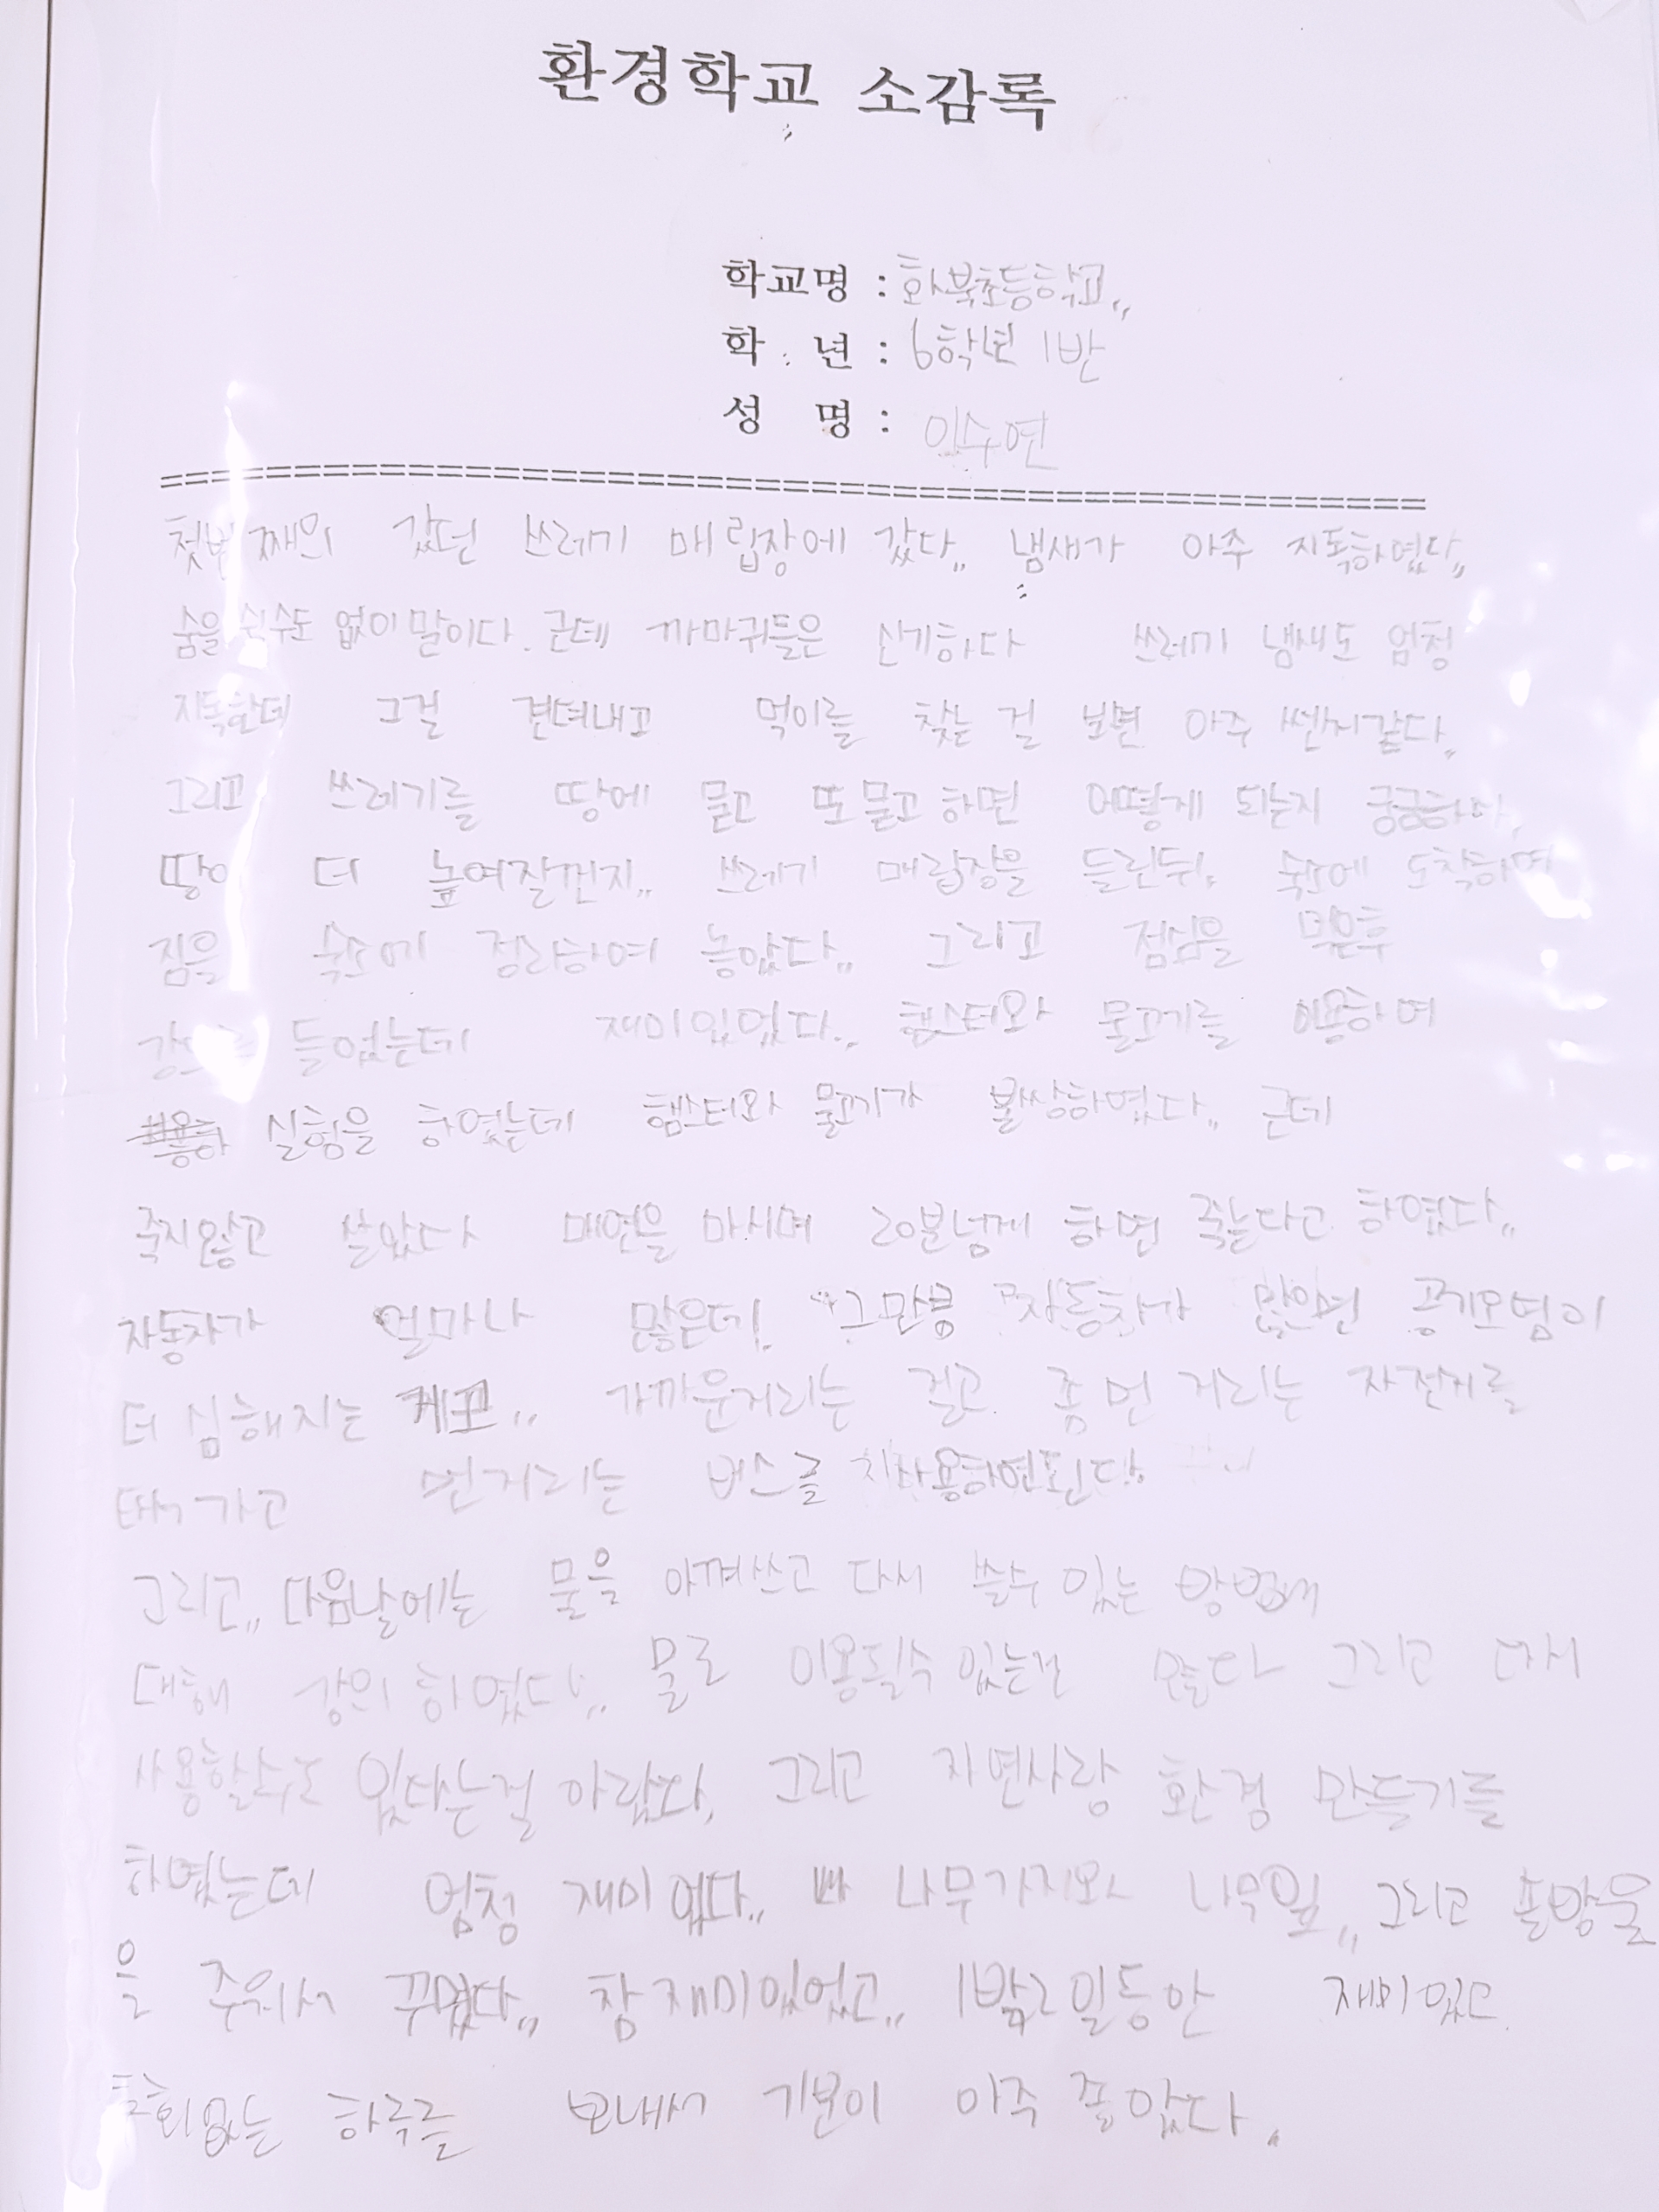 환경학교 소감록
학교명 : 화북초등학교,,
학 년 : 6학년 1반
성 명 : 이수연
첫번째의 갔던 쓰레기 매립장에 갔다,, 냄새가 아주 지독하였다,,
숨을 쉴수도 없이 말이다. 근데 까마귀들은 신기하다 쓰레기 냄새도 엄청
지독한데 그걸 견뎌내고 먹이를 찾는 걸 보면 아주 쎈치같다,,
그리고 쓰레기를 땅에 묻고 또 묻고 하면 어떻게 되는지 궁금하다,
땅이 더 높여잘껀지,, 쓰레기 매립장을 들린뒤, 숙소에 도착하여
짐을 숙소에 정리하여 놓았다,, 그리고 점심을 먹은후
들었는데 재미있었다,, 햄스터와 물고기를 이용하여
실험을 하였는데 햄스터와 물고기가 불쌍하였다,, 근데
죽지않고 살았다 매연을 마시며 20분넘게 하면 죽는다고 하였다,,
자동차가 얼마나 많은데, 그만큼 자동차가 많으면 공기오염이
더 심해지는 가까운거리는 걷고 좀 먼 거리는 자전거를
타가고 먼거리는 버스를 사용하면된다
그리고,, 다음날에는 물을 아껴쓰고 다시 쓸수 있는 방법에
대해 강의 하였다,, 물로 이용될수 있는건 많다 그리고 다시
사용할수도 있다는걸 아랐다, 그리고 자연사랑 환경 만들기를
하였는데 엄청 재미 있다,, 나무가지와 나무잎,, 그리고 솔방울
을 주워서 꾸몄다,, 참 재미있었고,, 1박2일동안 재미있고
후회없는 하루를 보내서 기분이 아주 좋았다.